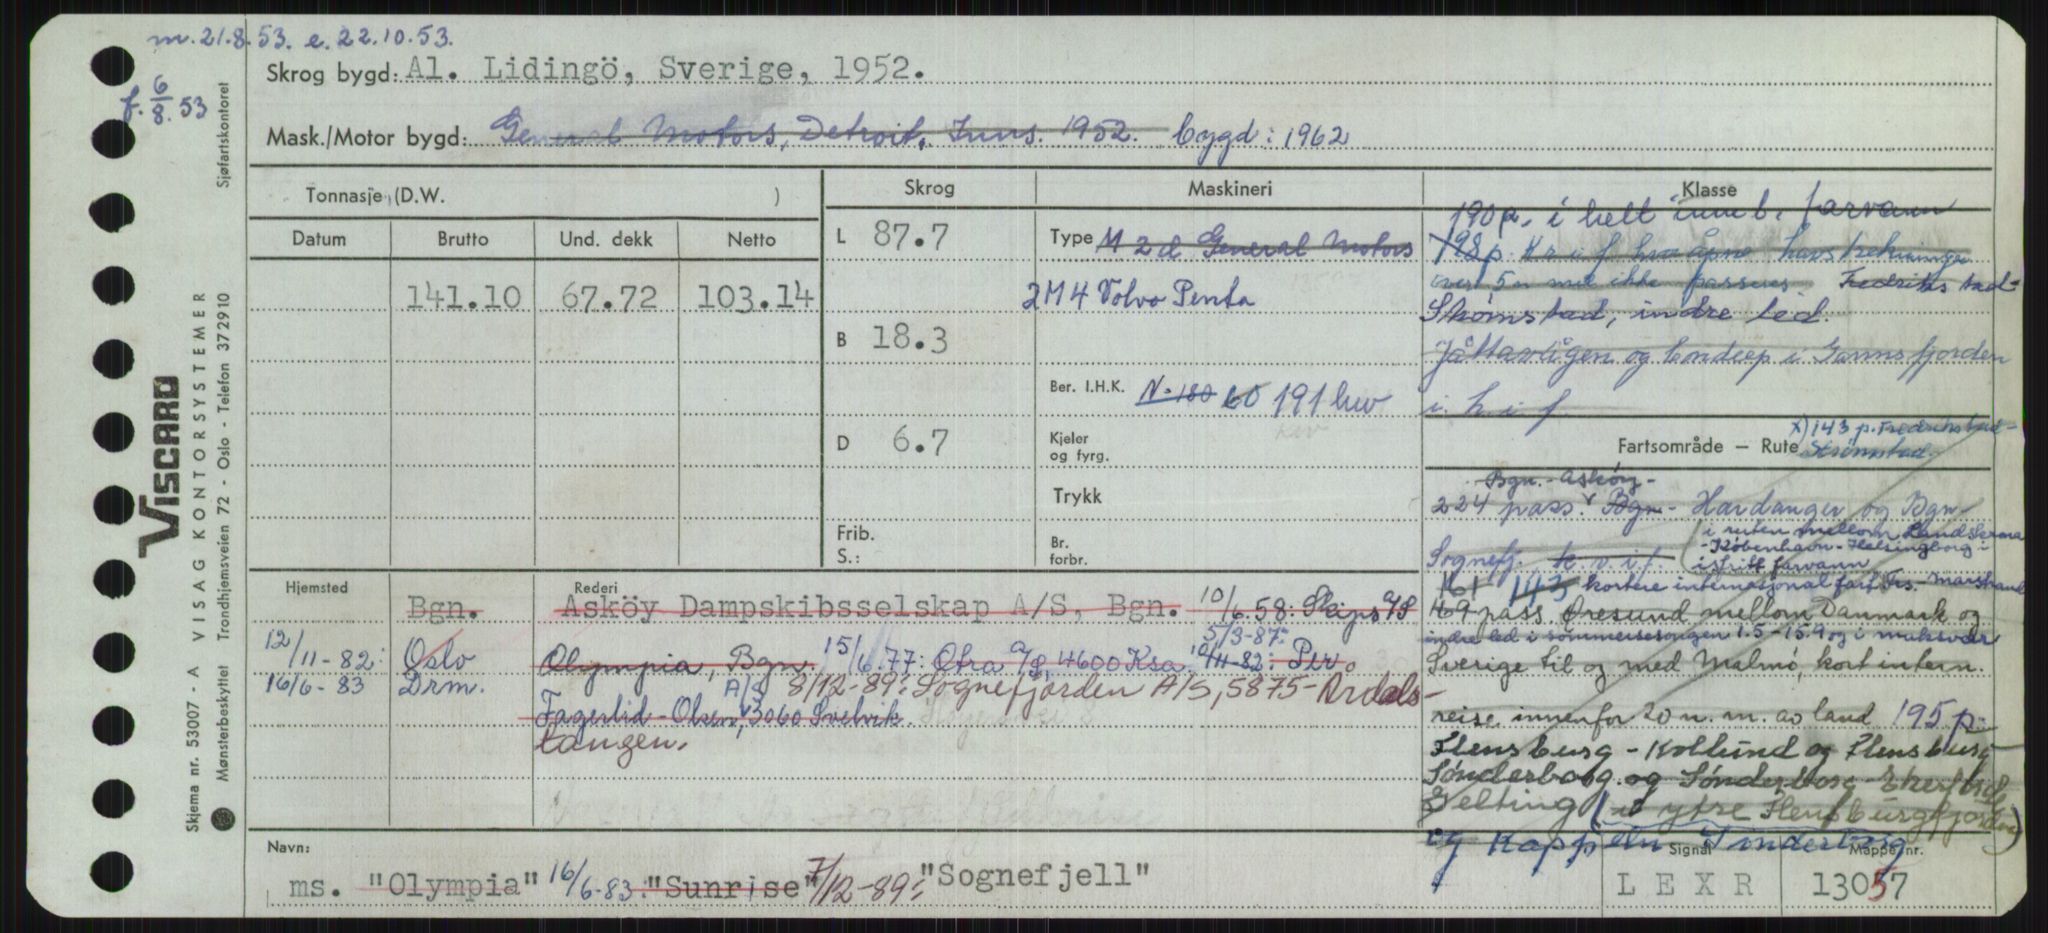 m. 21.8.53. e. 22.10.53.
f. 6/8.53
Skrog bygd: Al. Lidingö, Sverige, 1952.
Mask./Motor bygd: General Motors, Detroit, 1952. bygd: 1962
Tonnasje (D.W. )
Skrog
Maskineri
Klasse
Datum Brutto Und. dekk Netto
141.10 67.72 103.14
L 87.7
B 18.3
D 6.7
Frib.
S.:
Type M 2d General Motors
2M4 Volvo Penta
Ber. I.H.K. N. 180 191 hkv
Kjeler
og fyrg.
Trykk
Br.
forbr.
190 p. i helt innb. farvann
198 p. i f hvor åpne havstrekninger
over 5 n mil ikke passeres. Fredrikstad-
Strømstad, indre led.
Jåttavågen og i Gannsfjorden
i h i f
Fartsområde — Rute
x) 143 p. Fredrikstad-
Strømstad.
Bgn. - Askøy -
224 pass. Bgn - Hardanger og Bgn-
i ruten mellom Landskrona
Sognefj. k v i f.
- København - Helsingborg i
i fritt farvann
161 143 kortere internasjonal fart - Marstrand
169 pass. Øresund mellom Danmark og
indre led i sommersesongen 1.5-15.9 og i maksvær
Sverige til og med Malmö, kort intern.
reise innenfor 20 n. m. av land 195 p.
Flensburg - Kollund og Flensburg
Sønderborg og Sønderborg -
Gelting (i ytre Flensburgfjorden)
og Kappeln Sønderborg
Hjemsted
Rederi
Bgn. Asköy Dampskibsselskap A/S, Bgn. 10/6.58: Skips A/S
5/3-87:
12/11-82: Oslo Olympia, Bgn. 15/6.77: Otra A/S, 4600 Ksa. 10/11-82: Per
16/6-83 Drm. A/S 8/12-89: Sognefjorden A/S, 5875-Årdals-
Fagerlid-Olsen, 3060 Svelvik.
tangen.
Navn:
ms. "Olympia" 16/6-83: "Sunrise" 7/12-89: "Sognefjell"
Signal
LEXR
Mappe nr.
13057
Sjøfartskontoret
VISCARD
VISAG KONTORSYSTEMER
Trondhjemsveien 72 - Oslo - Telefon 372910
Skjema nr. 53007 - A
Mønsterbeskyttet